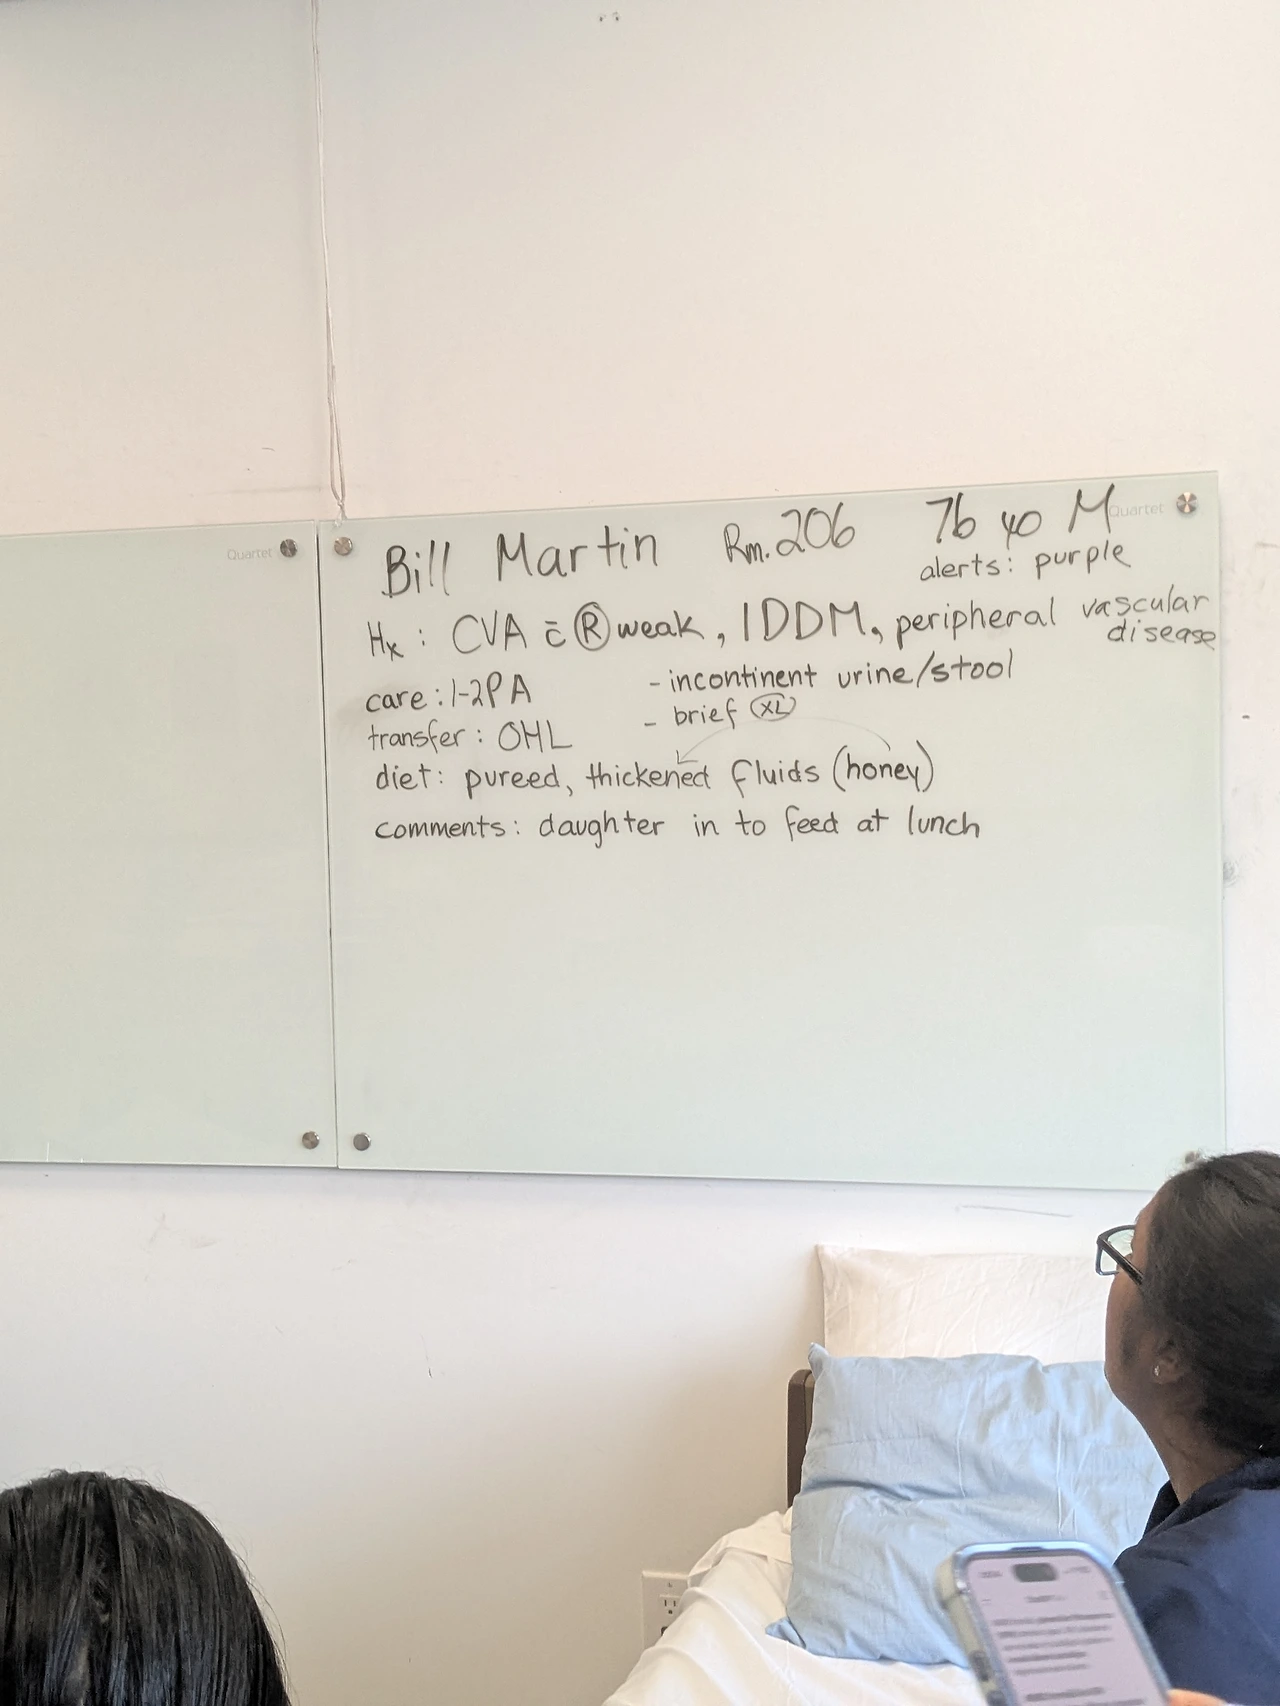 Quartet
Bill Martin Rm. 206 76 yo M
Quartet
alerts: purple
Hx: CVA c̄ Ⓡ weak, IDDM, peripheral vascular disease
care: 1-2PA - incontinent urine/stool
- brief XL
transfer: OHL
diet: pureed, thickened fluids (honey)
comments: daughter in to feed at lunch